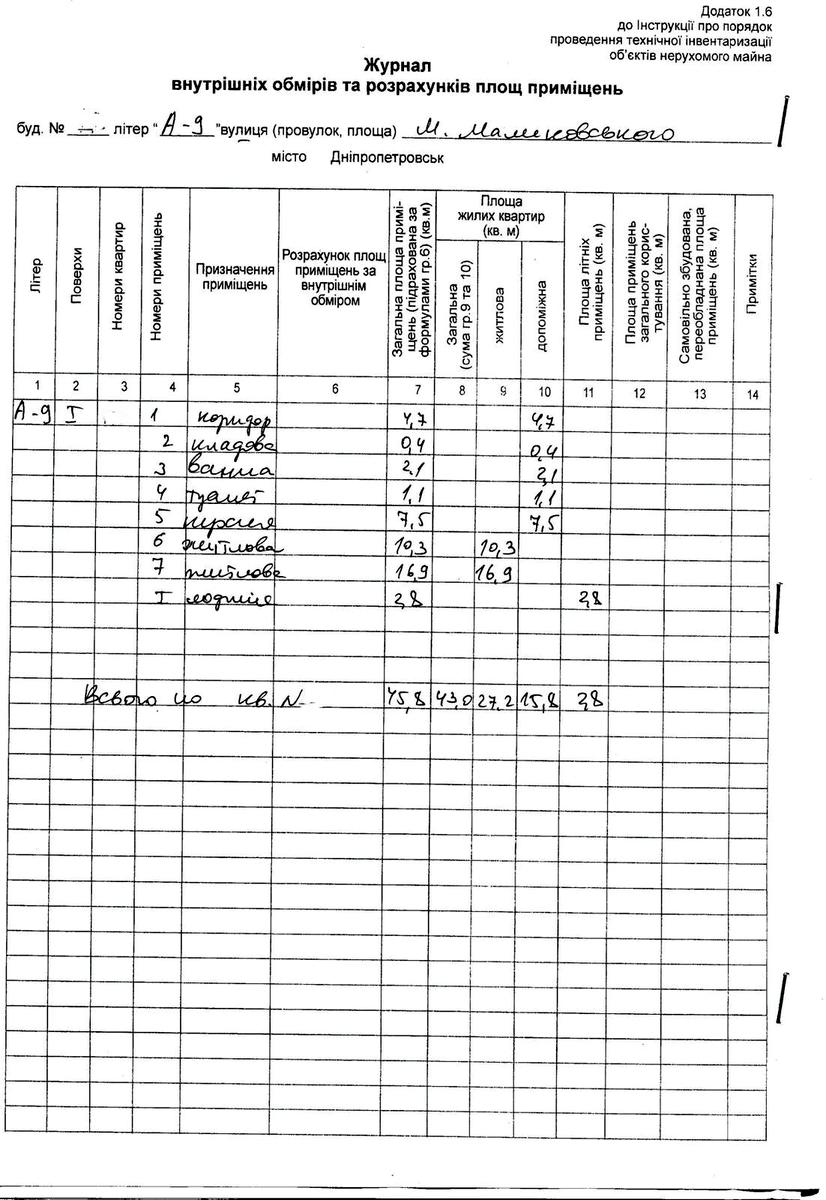 Додаток 1.6
до Інструкції про порядок
проведення технічної інвентаризації
об'єктів нерухомого майна
Журнал
внутрішніх обмірів та розрахунків площ приміщень
буд. № літер "А-9"вулиця (провулок, площа) М.
місто Дніпропетровськ
Літер Поверхи Номери квартир Номери приміщень Призначення приміщень Розрахунок площ приміщень за внутрішнім обміром Загальна площа приміщень (підрахована за формулами гр.6) (кв.м) Площа жилих квартир (кв. м) Загальна (сума гр.9 та 10) житлова допоміжна Площа літніх приміщень (кв. м) Площа приміщень загального користування (кв. м) Самовільно збудована, переобладнана площа приміщень (кв. м) Примітки
1 2 3 4 5 6 7 8 9 10 11 12 13 14
А-9 I 1 коридор 4,7 4,7
2 кладова 0,4 0,4
3 ванна 2,1 2,1
4 туалет 1,1 1,1
5 кухня 7,5 7,5
6 житлова 10,3 10,3
7 житлова 16,9 16,9
I лоджія 2,8 2,8
Всього по кв. N 45,8 43,0 27,2 15,8 2,8